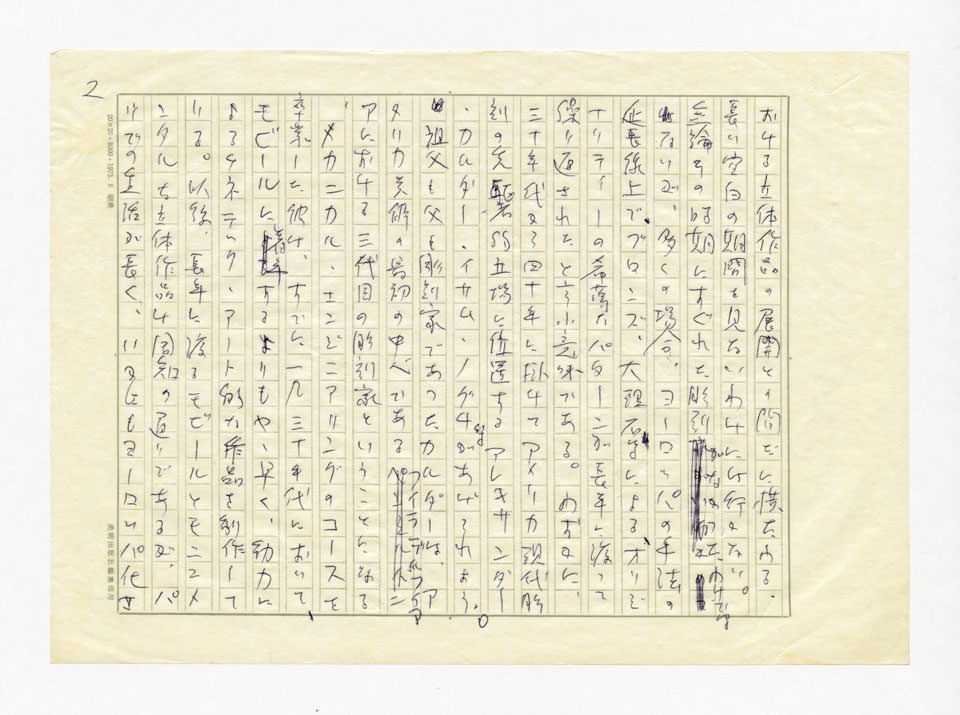 2
おける立体作品の展開との間に横たわる、
長い空白の期間を見ないわけには行かない。
無論その時期にすぐれた彫刻がなかったわけでは
ないが、多くの場合、ヨーロッパの手法の
延長線上で、ブロンズ、大理石による、オリジ
ナリティーの希薄なパターンが長年に渡って
繰り返されたと言う意味である。わずかに、
三十年代から四十年にかけてアメリカ現代彫
刻の先駆者的立場に位置するアレキサンダー
・カルダー、イサム・ノグチ等があげられよう。
祖父も父も彫刻家であったカルダーは、ア
メリカ美術の最初の中心であるフィラデルフィア
アにおける三代目の彫刻家ということになる
。メカニカル・エンジニアリングのコースを
卒業した彼は、すでに一九三十年代において
モビールに着手するよりもやゝ早く、動力に
よるキネテック・アート的な作品を制作して
いる。以後、長年に渡るモビールとモニュメ
ンタルな立体作品は周知の通りであるが、パ
リでの生活が長く、いかにもヨーロッパ化さ
20×20 1973
美術出版社編集部用